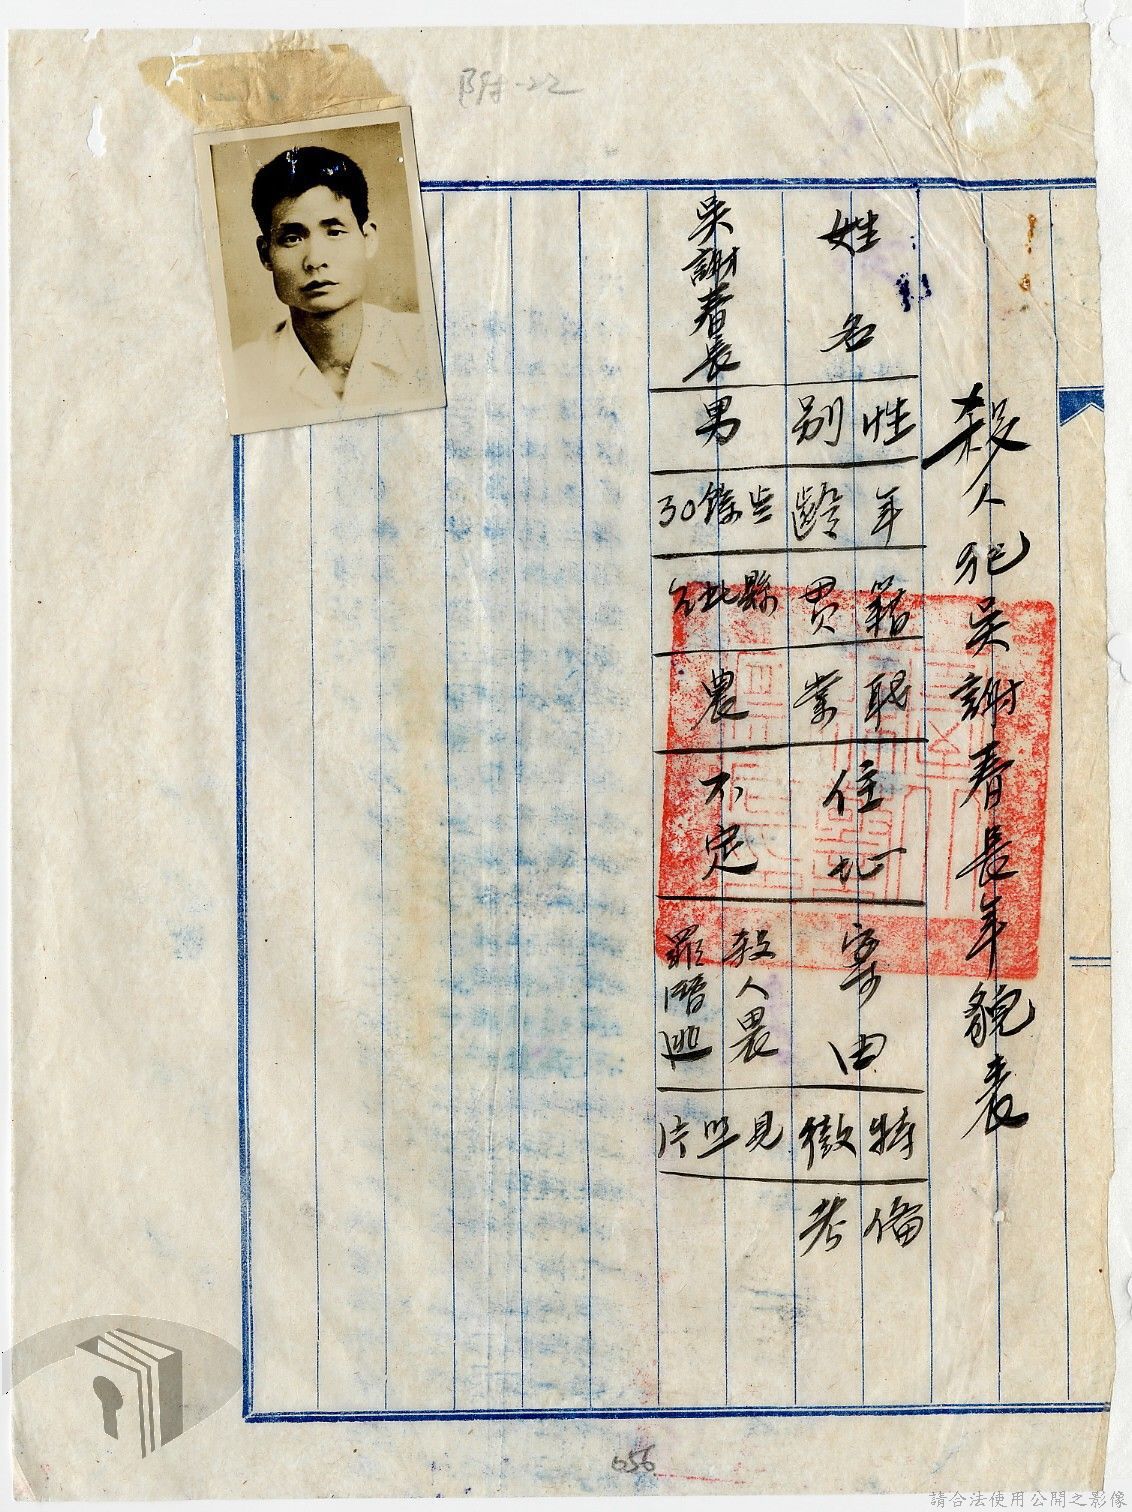 附-22
殺人犯吳謝春長年貌表
姓名
吳謝春長
性別
男
年齡
30餘歲
籍貫
台北縣
職業
農
住址
不定
案由
殺人畏罪潛逃
特徵
見照片
備考
056
請合法使用公開之影像